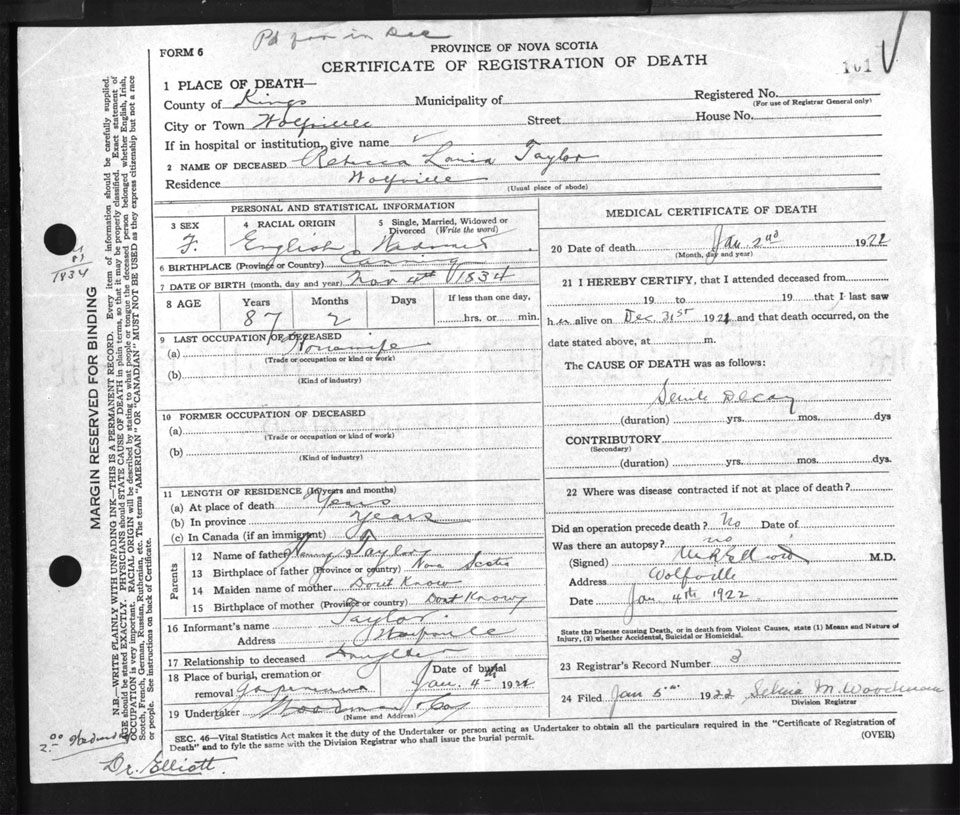 Pd for in Dec
FORM 6
PROVINCE OF NOVA SCOTIA
CERTIFICATE OF REGISTRATION OF DEATH
101
1 PLACE OF DEATH—
County of Kings Municipality of Registered No.
(For use of Registrar General only)
City or Town Wolfville Street House No.
If in hospital or institution, give name
2 NAME OF DECEASED Rebecca Louisa Taylor
Residence Wolfville
(Usual place of abode)
PERSONAL AND STATISTICAL INFORMATION
3 SEX 4 RACIAL ORIGIN 5 Single, Married, Widowed or Divorced (Write the word)
F. English Widowed
6 BIRTHPLACE (Province or Country) Canning
7 DATE OF BIRTH (month, day and year) Nov 4th 1834
8 AGE Years Months Days If less than one day,
87 2 hrs. or min.
9 LAST OCCUPATION OF DECEASED
(a) Housewife
(Trade or occupation or kind or work)
(b)
(Kind of industry)
10 FORMER OCCUPATION OF DECEASED
(a)
(Trade or occupation or kind of work)
(b)
(Kind of industry)
11 LENGTH OF RESIDENCE (In years and months)
(a) At place of death Years
(b) In province Years
(c) In Canada (if an immigrant)
Parents
12 Name of father Taylor
13 Birthplace of father (Province or country) Nova Scotia
14 Maiden name of mother Dont Know
15 Birthplace of mother (Province or country) Dont Know
16 Informant's name Taylor
Address Wolfville
17 Relationship to deceased Daughter
18 Place of burial, cremation or removal Date of burial Jan. 4th 1922
19 Undertaker Woodman & Co
(Name and Address)
MEDICAL CERTIFICATE OF DEATH
20 Date of death Jan 2nd 1922
(Month, day and year)
21 I HEREBY CERTIFY, that I attended deceased from
19 to 19 that I last saw
her alive on Dec 31st 1921 and that death occurred, on
date stated above, at m.
The CAUSE OF DEATH was as follows:
Senile Decay
(duration) yrs. mos. dys
CONTRIBUTORY
(Secondary)
(duration) yrs. mos. dys.
22 Where was disease contracted if not at place of death?
Did an operation precede death? No Date of
Was there an autopsy? no
(Signed) Elliott M.D.
Address Wolfville
Date Jan 4th 1922
State the Disease causing Death, or in death from Violent Causes, state (1) Means and Nature of
Injury, (2) whether Accidental, Suicidal or Homicidal.
23 Registrar's Record Number 3
24 Filed Jan 5th 1922 M. Woodman
Division Registrar
SEC. 46—Vital Statistics Act makes it the duty of the Undertaker or person acting as Undertaker to obtain all the particulars required in the "Certificate of Registration of
Death" and to fyle the same with the Division Registrar who shall issue the burial permit.
(OVER)
MARGIN RESERVED FOR BINDING
N.B.—WRITE PLAINLY WITH UNFADING INK—THIS IS A PERMANENT RECORD. Every item of information should be carefully supplied.
AGE should be stated EXACTLY. PHYSICIANS should STATE CAUSE OF DEATH in plain terms, so that it may be properly classified. Exact statement of
OCCUPATION is very important. RACIAL ORIGIN will be described by stating to what people or tongue the deceased person belonged whether English, Irish,
Scotch, French, German, Russian, Ruthenian, etc. The terms "AMERICAN" OR "CANADIAN" MUST NOT BE USED as they express citizenship but not a race
or people. See instructions on back of Certificate.
81
1834
2.00
Dr. Elliott.